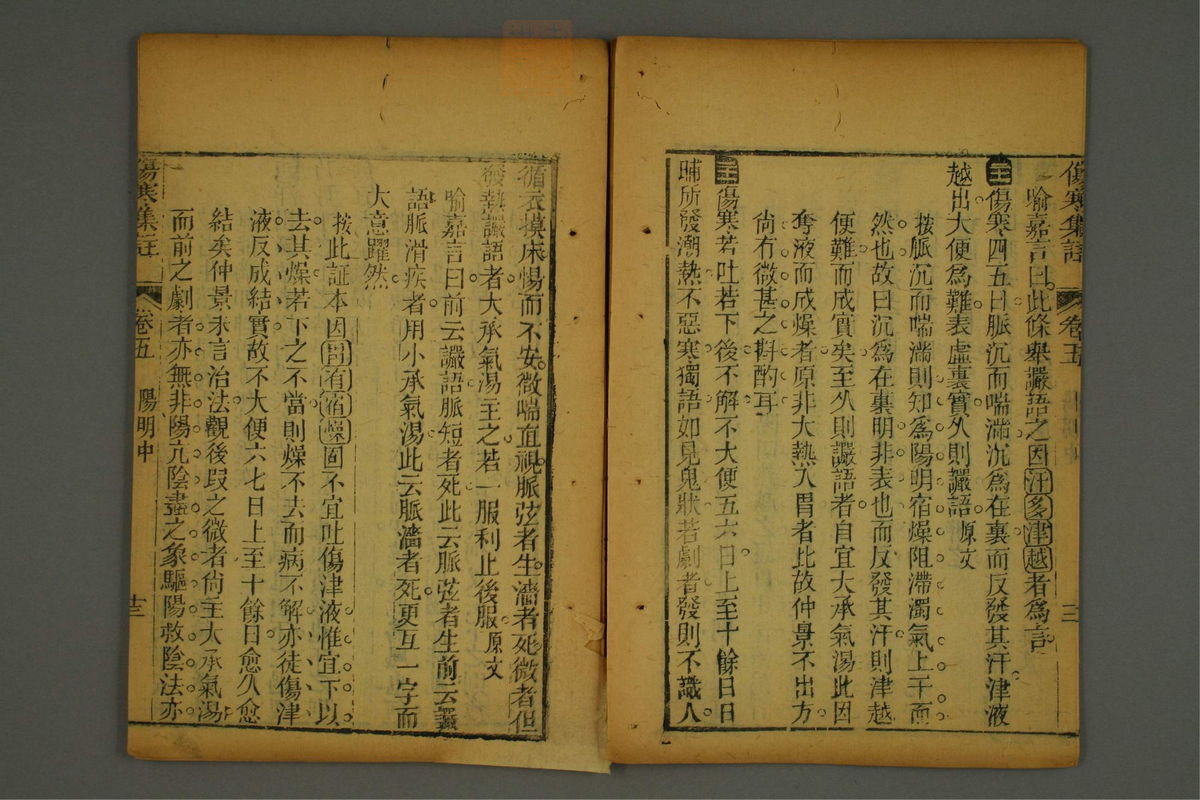 傷寒集註 卷五
喻嘉言曰此條舉讝語之因汗多津越者為言
傷寒四五日脈沉而喘滿沉為在裏而反發其汗津液
越出大便為難表虛裏實久則讝語原文
按脈沉而喘滿則知為陽明宿燥阻滯濁氣上干而
然也故曰沉為在裏明非表也而反發其汗則津越
便難而成實矣至久則讝語者自宜大承氣湯此因
奪液而成燥者原非大熱入胃者比故仲景不出方
尙有微甚之斟酌耳
傷寒若吐若下後不解不大便五六日上至十餘日日
晡所發潮熱不惡寒獨語如見鬼狀若劇者發則不識人
循衣摸床惕而不安微喘直視脈弦者生濇者死微者但
發熱讝語者大承氣湯主之若一服利止後服原文
喻嘉言曰前云讝語脈短者死此云脈弦者生前云讝
語脈滑疾者用小承氣湯此云脈濇者死更互一字而
大意躍然
按此証本因胃有宿燥固不宜吐傷津液惟宜下以
去其燥若下之不當則燥不去而病不解亦徒傷津
液反成結實故不大便六七日上至十餘日愈久愈
結矣仲景未言治法觀後段之微者尙主大承氣湯
而前之劇者亦無非陽亢陰盡之象驅陽救陰法亦
傷寒集註 卷五 陽明中